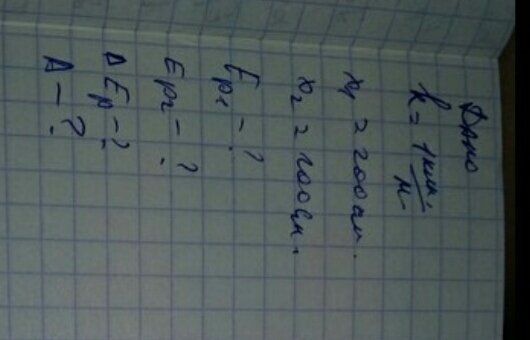 Дано
k = 1 кн./м
x₁ = 200 см.
x₂ = 200 см.
Eр₁ - ?
Eр₂ - ?
ΔEр - ?
A - ?